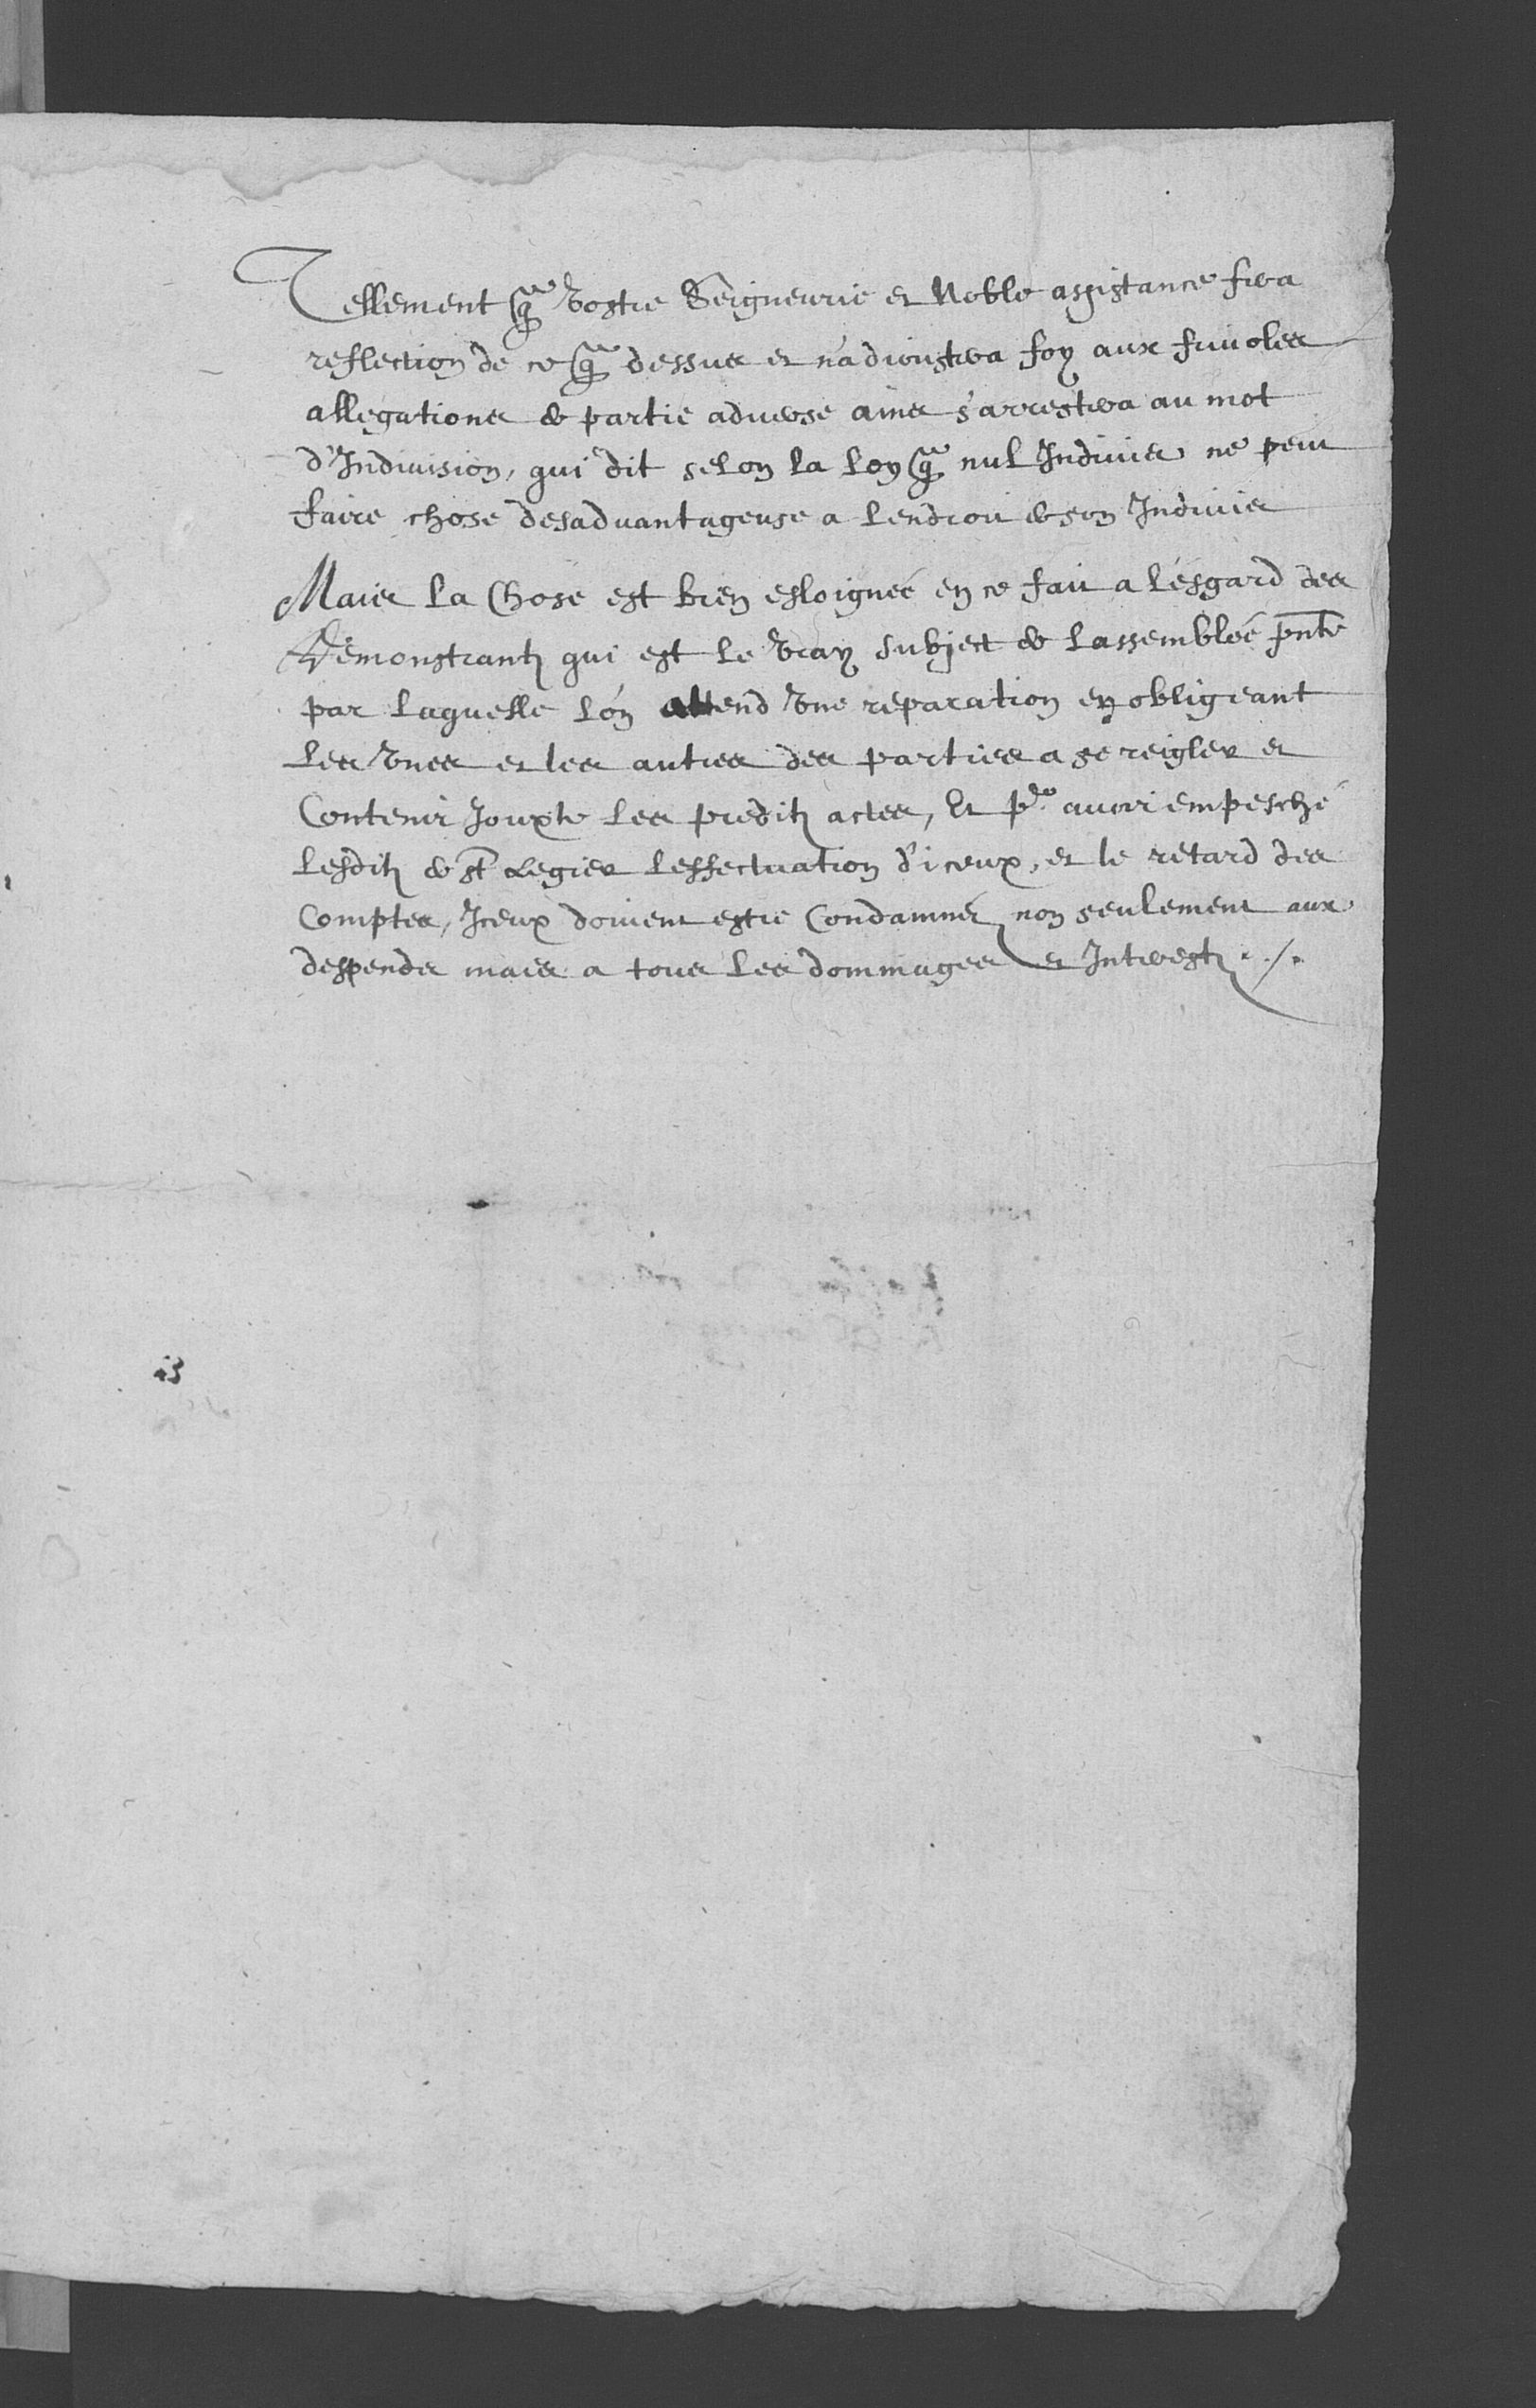 Tellement q̃ Vostre Seigneurie et Noble assistance fera
reflection de ce q̃ dessus et n'adioustera foy aux friuoles
allegations de partie aduerse ains s'arrestera au mot
d'Indiuision, qui dit selon la loy q̃ nul Indiuis ne peut
faire chose desaduantageuse a lendroit de son Indiuis
Mais la Chose est bien esloigneé en ce fait a l'ésgard des
Demonstrantz qui est le vray subject de lassembleé pnte
par laquelle l'ón attend vne reparation en obligeant
les vnes et les autres des parties a se reigler et
Contenir Jouxte les preditz actes, Et pr auoir empesché
lesditz de St Legier leffectuation d'iceux, et le retard des
Comptes, Iceux doiuent estre Condamnéz non seulement aux
despends mais a tous les dommages et Interestz ./.